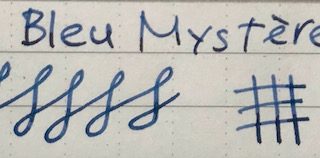 Bleu Mystère